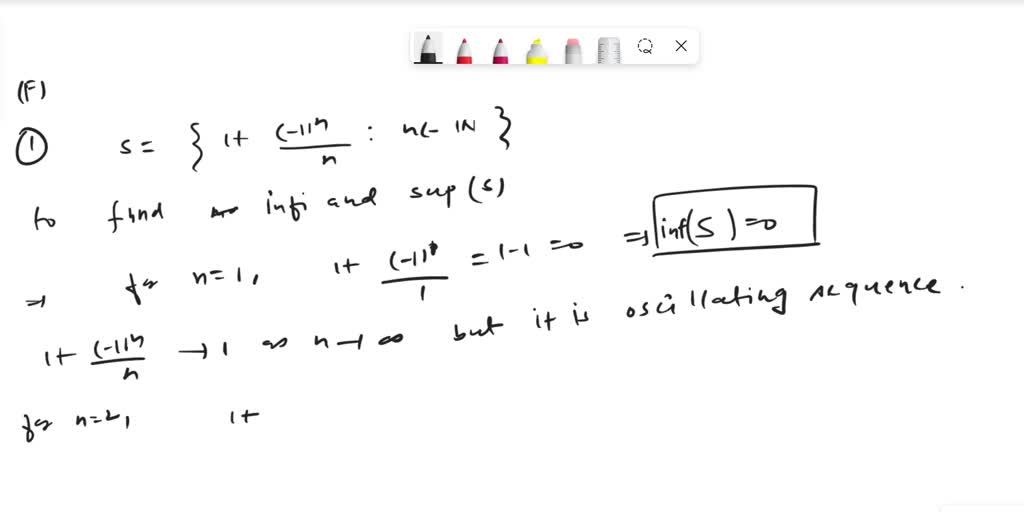 (F)
① S = { 1+ (-1)^n / n : n ∈ IN }
to find infi and sup (S)
⇒ for n=1, 1+ (-1)^1 / 1 = 1-1 = 0 ⇒ inf(S) = 0
1+ (-1)^n / n → 1 as n → ∞ but it is oscillating sequence.
for n=2, 1+